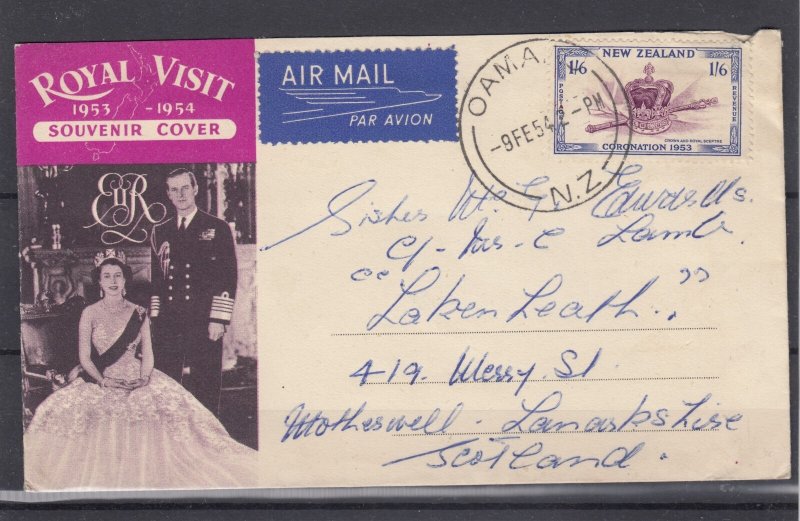 ROYAL VISIT
1953 - 1954
SOUVENIR COVER
EIIR
AIR MAIL
PAR AVION
OAMA
-9FE54 -PM
N.Z.
NEW ZEALAND
1/6 1/6
POSTAGE
REVENUE
CROWN AND ROYAL SCEPTRE
CORONATION 1953
Sister Edwards.
C/- Lamb
"Laken Leath."
419. Merry St
Motherwell. Lanarkshire
Scotland.